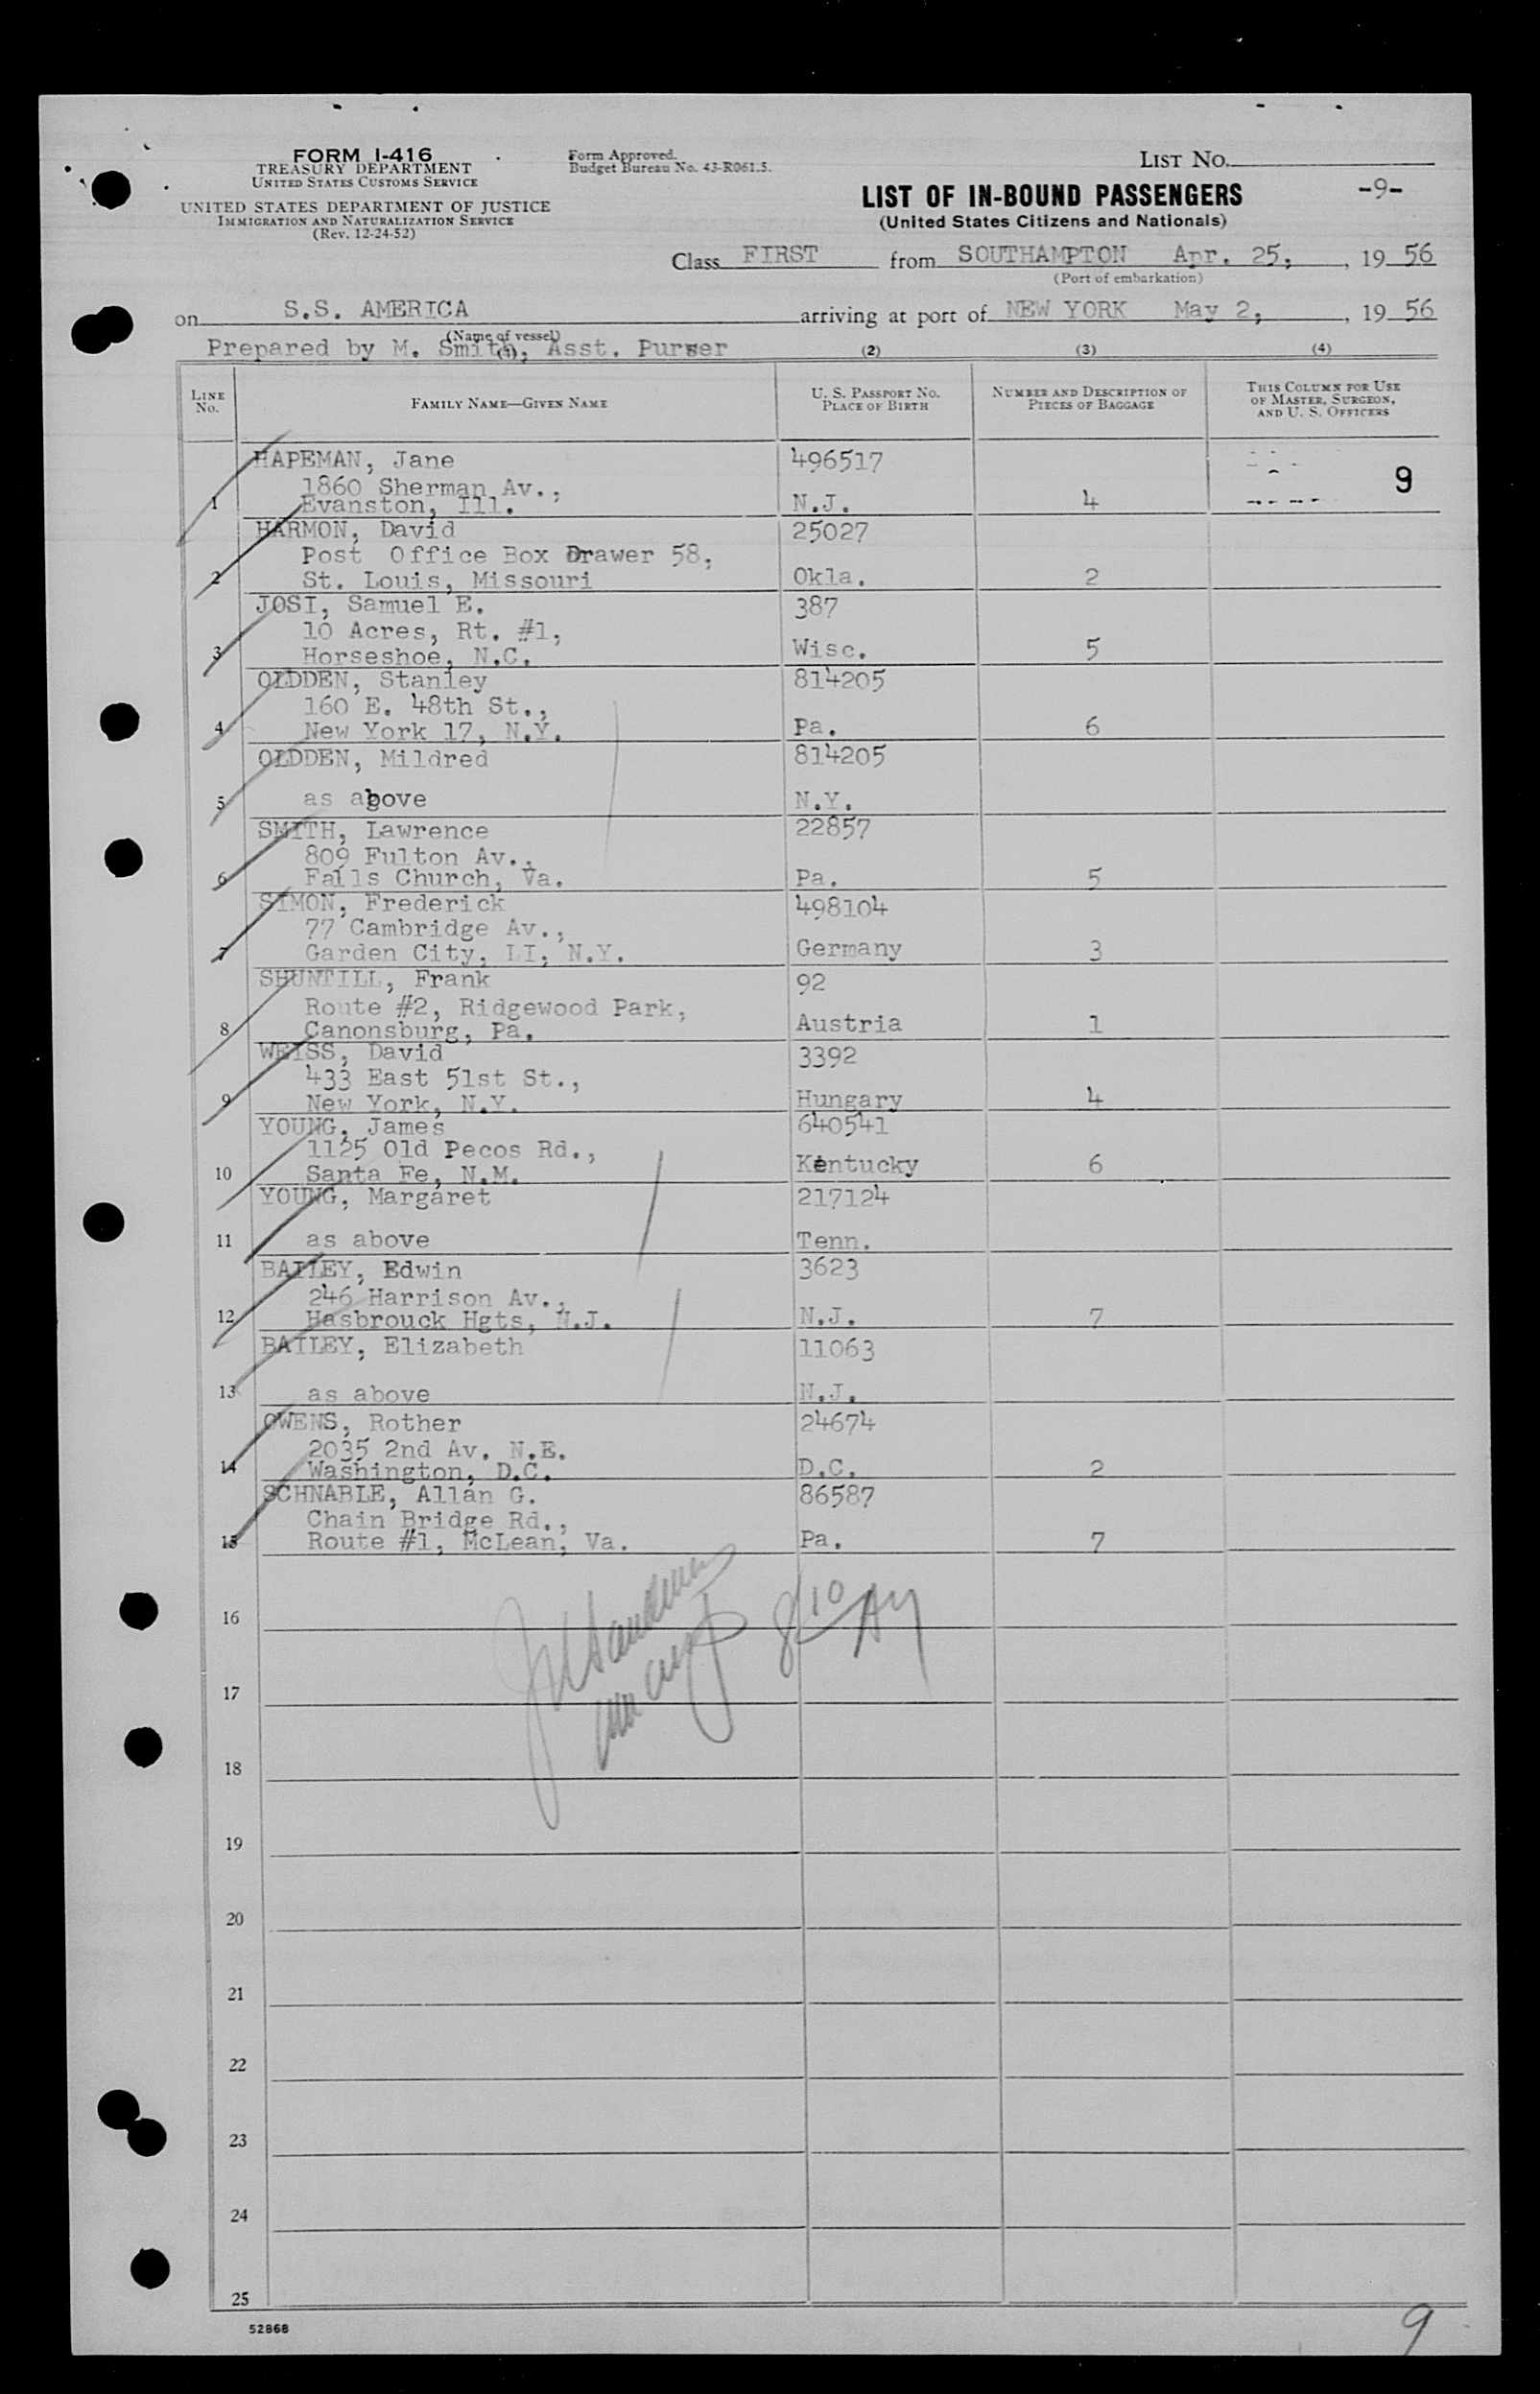 FORM I-416
TREASURY DEPARTMENT
UNITED STATES CUSTOMS SERVICE
UNITED STATES DEPARTMENT OF JUSTICE
IMMIGRATION AND NATURALIZATION SERVICE
(Rev. 12-24-52)
Form Approved.
Budget Bureau No. 43-R061.5.
LIST NO.
-9-
LIST OF IN-BOUND PASSENGERS
(United States Citizens and Nationals)
Class FIRST from SOUTHAMPTON Apr. 25, , 19 56
(Port of embarkation)
on S.S. AMERICA arriving at port of NEW YORK May 2, , 19 56
(Name of vessel)
Prepared by M. Smith, Asst. Purser
(1) (2) (3) (4)
LINE NO. FAMILY NAME—GIVEN NAME U. S. PASSPORT NO. PLACE OF BIRTH NUMBER AND DESCRIPTION OF PIECES OF BAGGAGE THIS COLUMN FOR USE OF MASTER, SURGEON, AND U. S. OFFICERS
HAPEMAN, Jane 496517
1860 Sherman Av., 9
1 Evanston, Ill. N.J. 4
HARMON, David 25027
Post Office Box Drawer 58,
2 St. Louis, Missouri Okla. 2
JOSI, Samuel E. 387
10 Acres, Rt. #1,
3 Horseshoe, N.C. Wisc. 5
OLDDEN, Stanley 814205
160 E. 48th St.,
4 New York 17, N.Y. Pa. 6
OLDDEN, Mildred 814205
5 as above N.Y.
SMITH, Lawrence 22857
809 Fulton Av.,
6 Falls Church, Va. Pa. 5
SIMON, Frederick 498104
77 Cambridge Av.,
7 Garden City, LI, N.Y. Germany 3
SHUNTILL, Frank 92
Route #2, Ridgewood Park,
8 Canonsburg, Pa. Austria 1
WEISS, David 3392
433 East 51st St.,
9 New York, N.Y. Hungary 4
YOUNG, James 640541
1125 Old Pecos Rd.,
10 Santa Fe, N.M. Kentucky 6
YOUNG, Margaret 217124
11 as above Tenn.
BAILEY, Edwin 3623
246 Harrison Av.,
12 Hasbrouck Hgts, N.J. N.J. 7
BAILEY, Elizabeth 11063
13 as above N.J.
OWENS, Rother 24674
2035 2nd Av. N.E.
14 Washington, D.C. D.C. 2
SCHNABLE, Allan G. 86587
Chain Bridge Rd.,
15 Route #1, McLean, Va. Pa. 7
16
17
18
19
20
21
22
23
24
25
52868
9